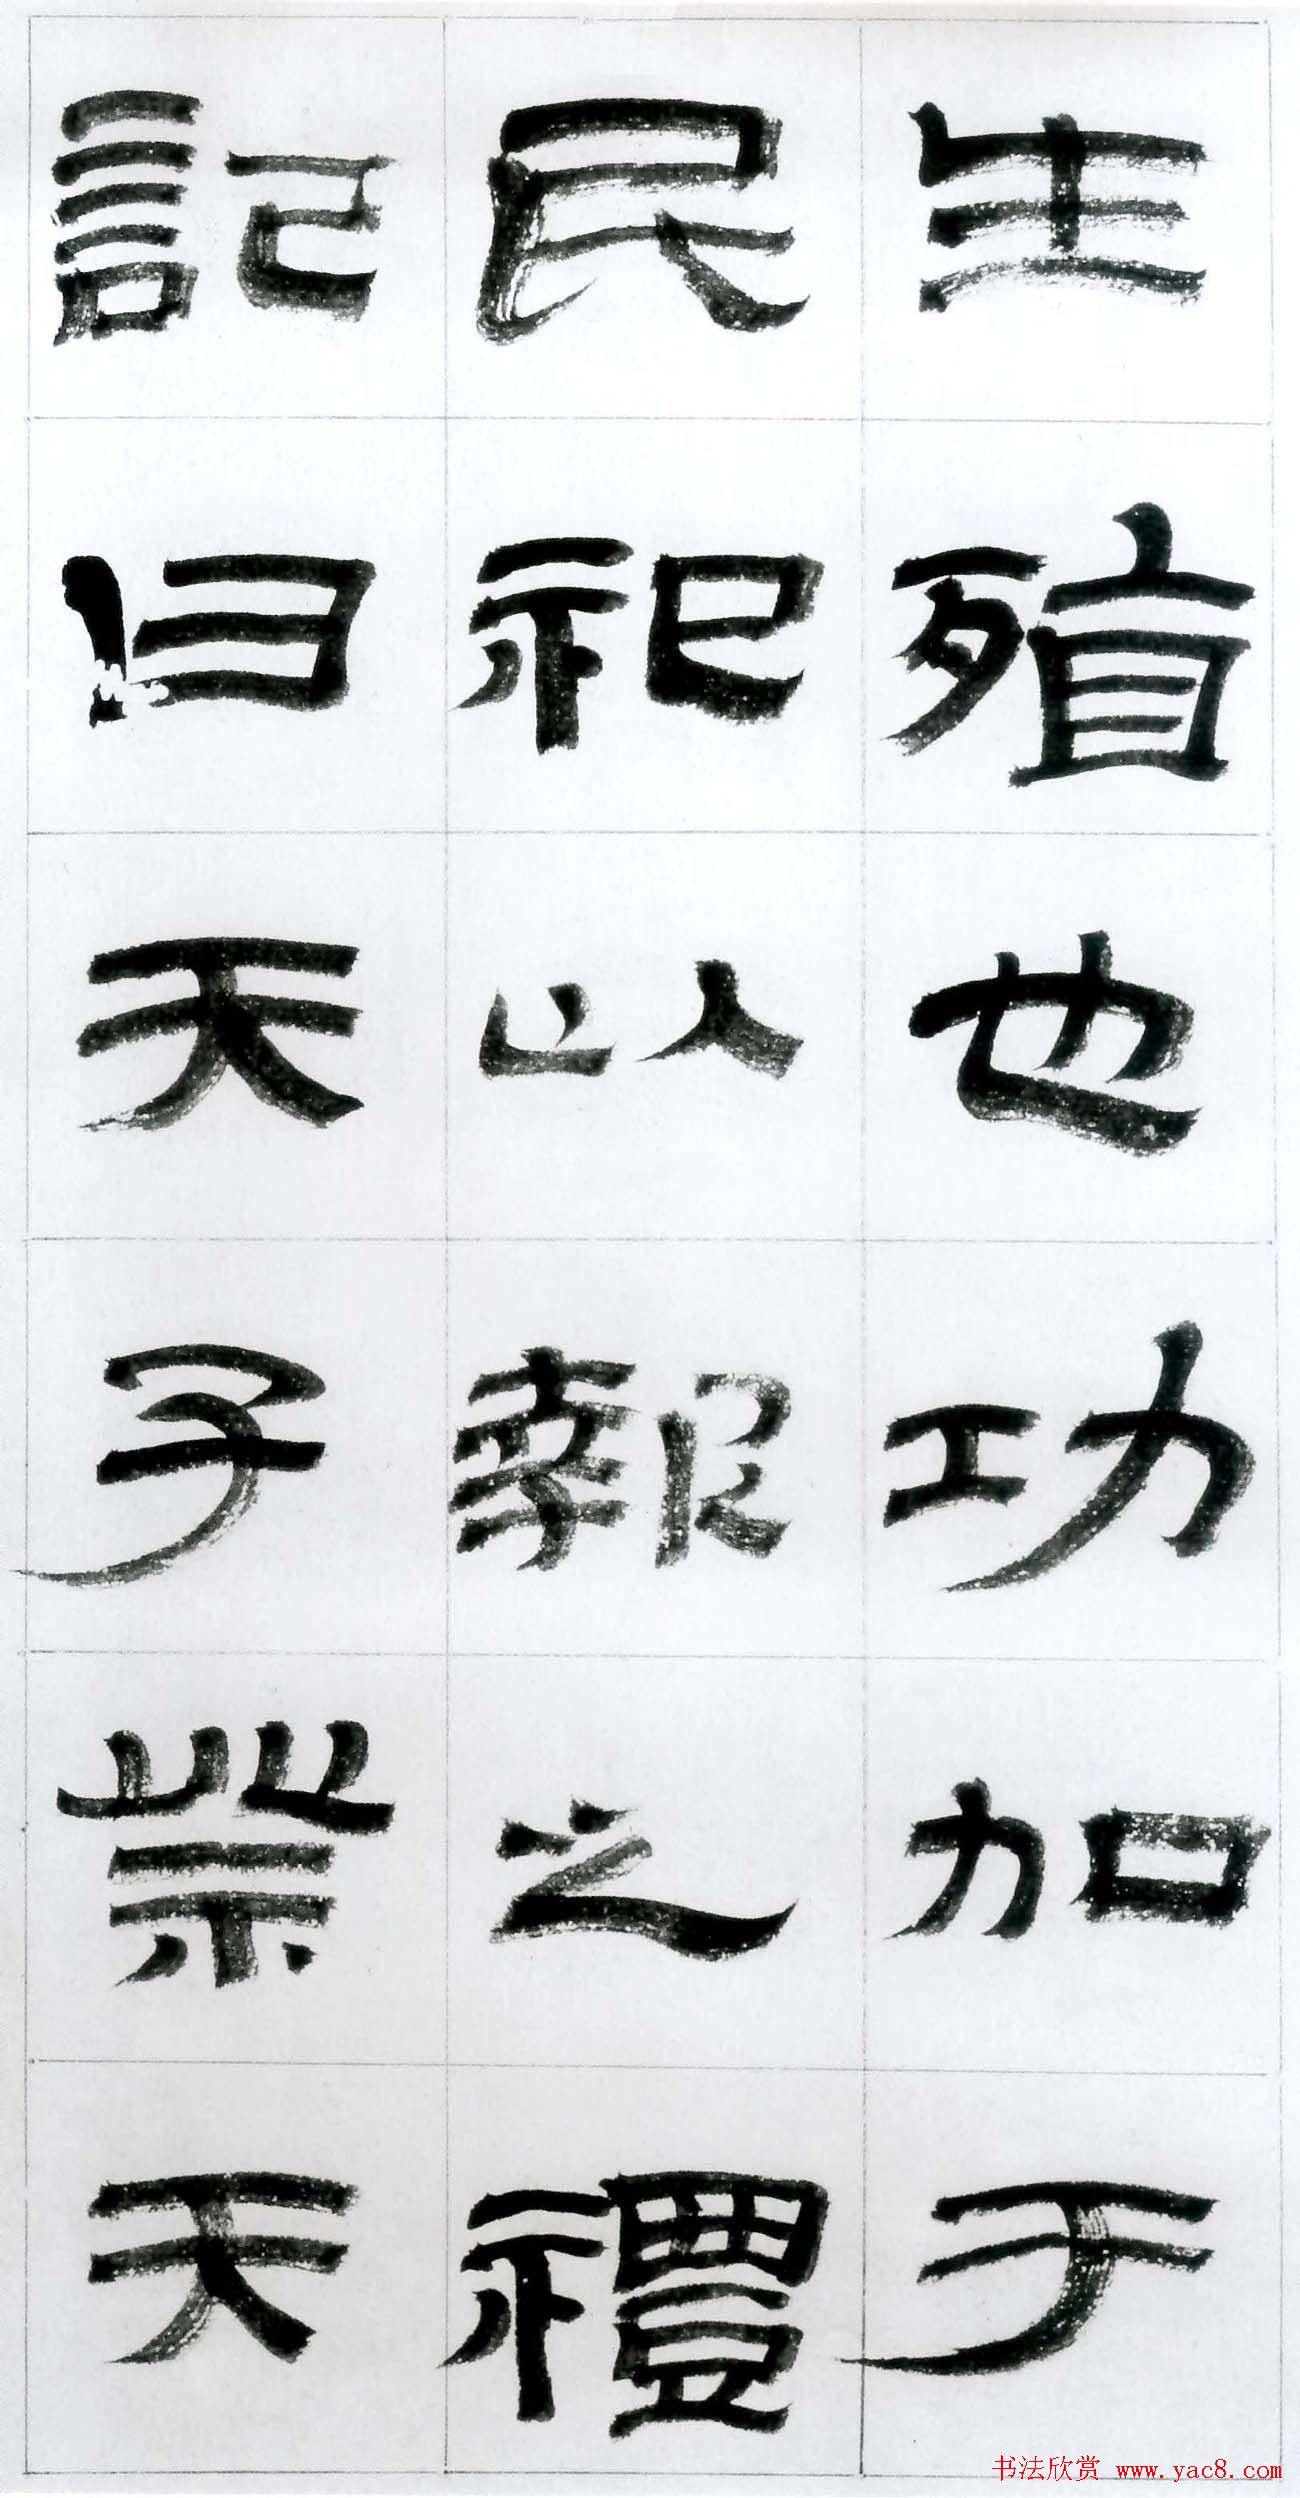 生殖也功加于
民祀以報之禮
記曰天子祭天
书法欣赏 www.yac8.com